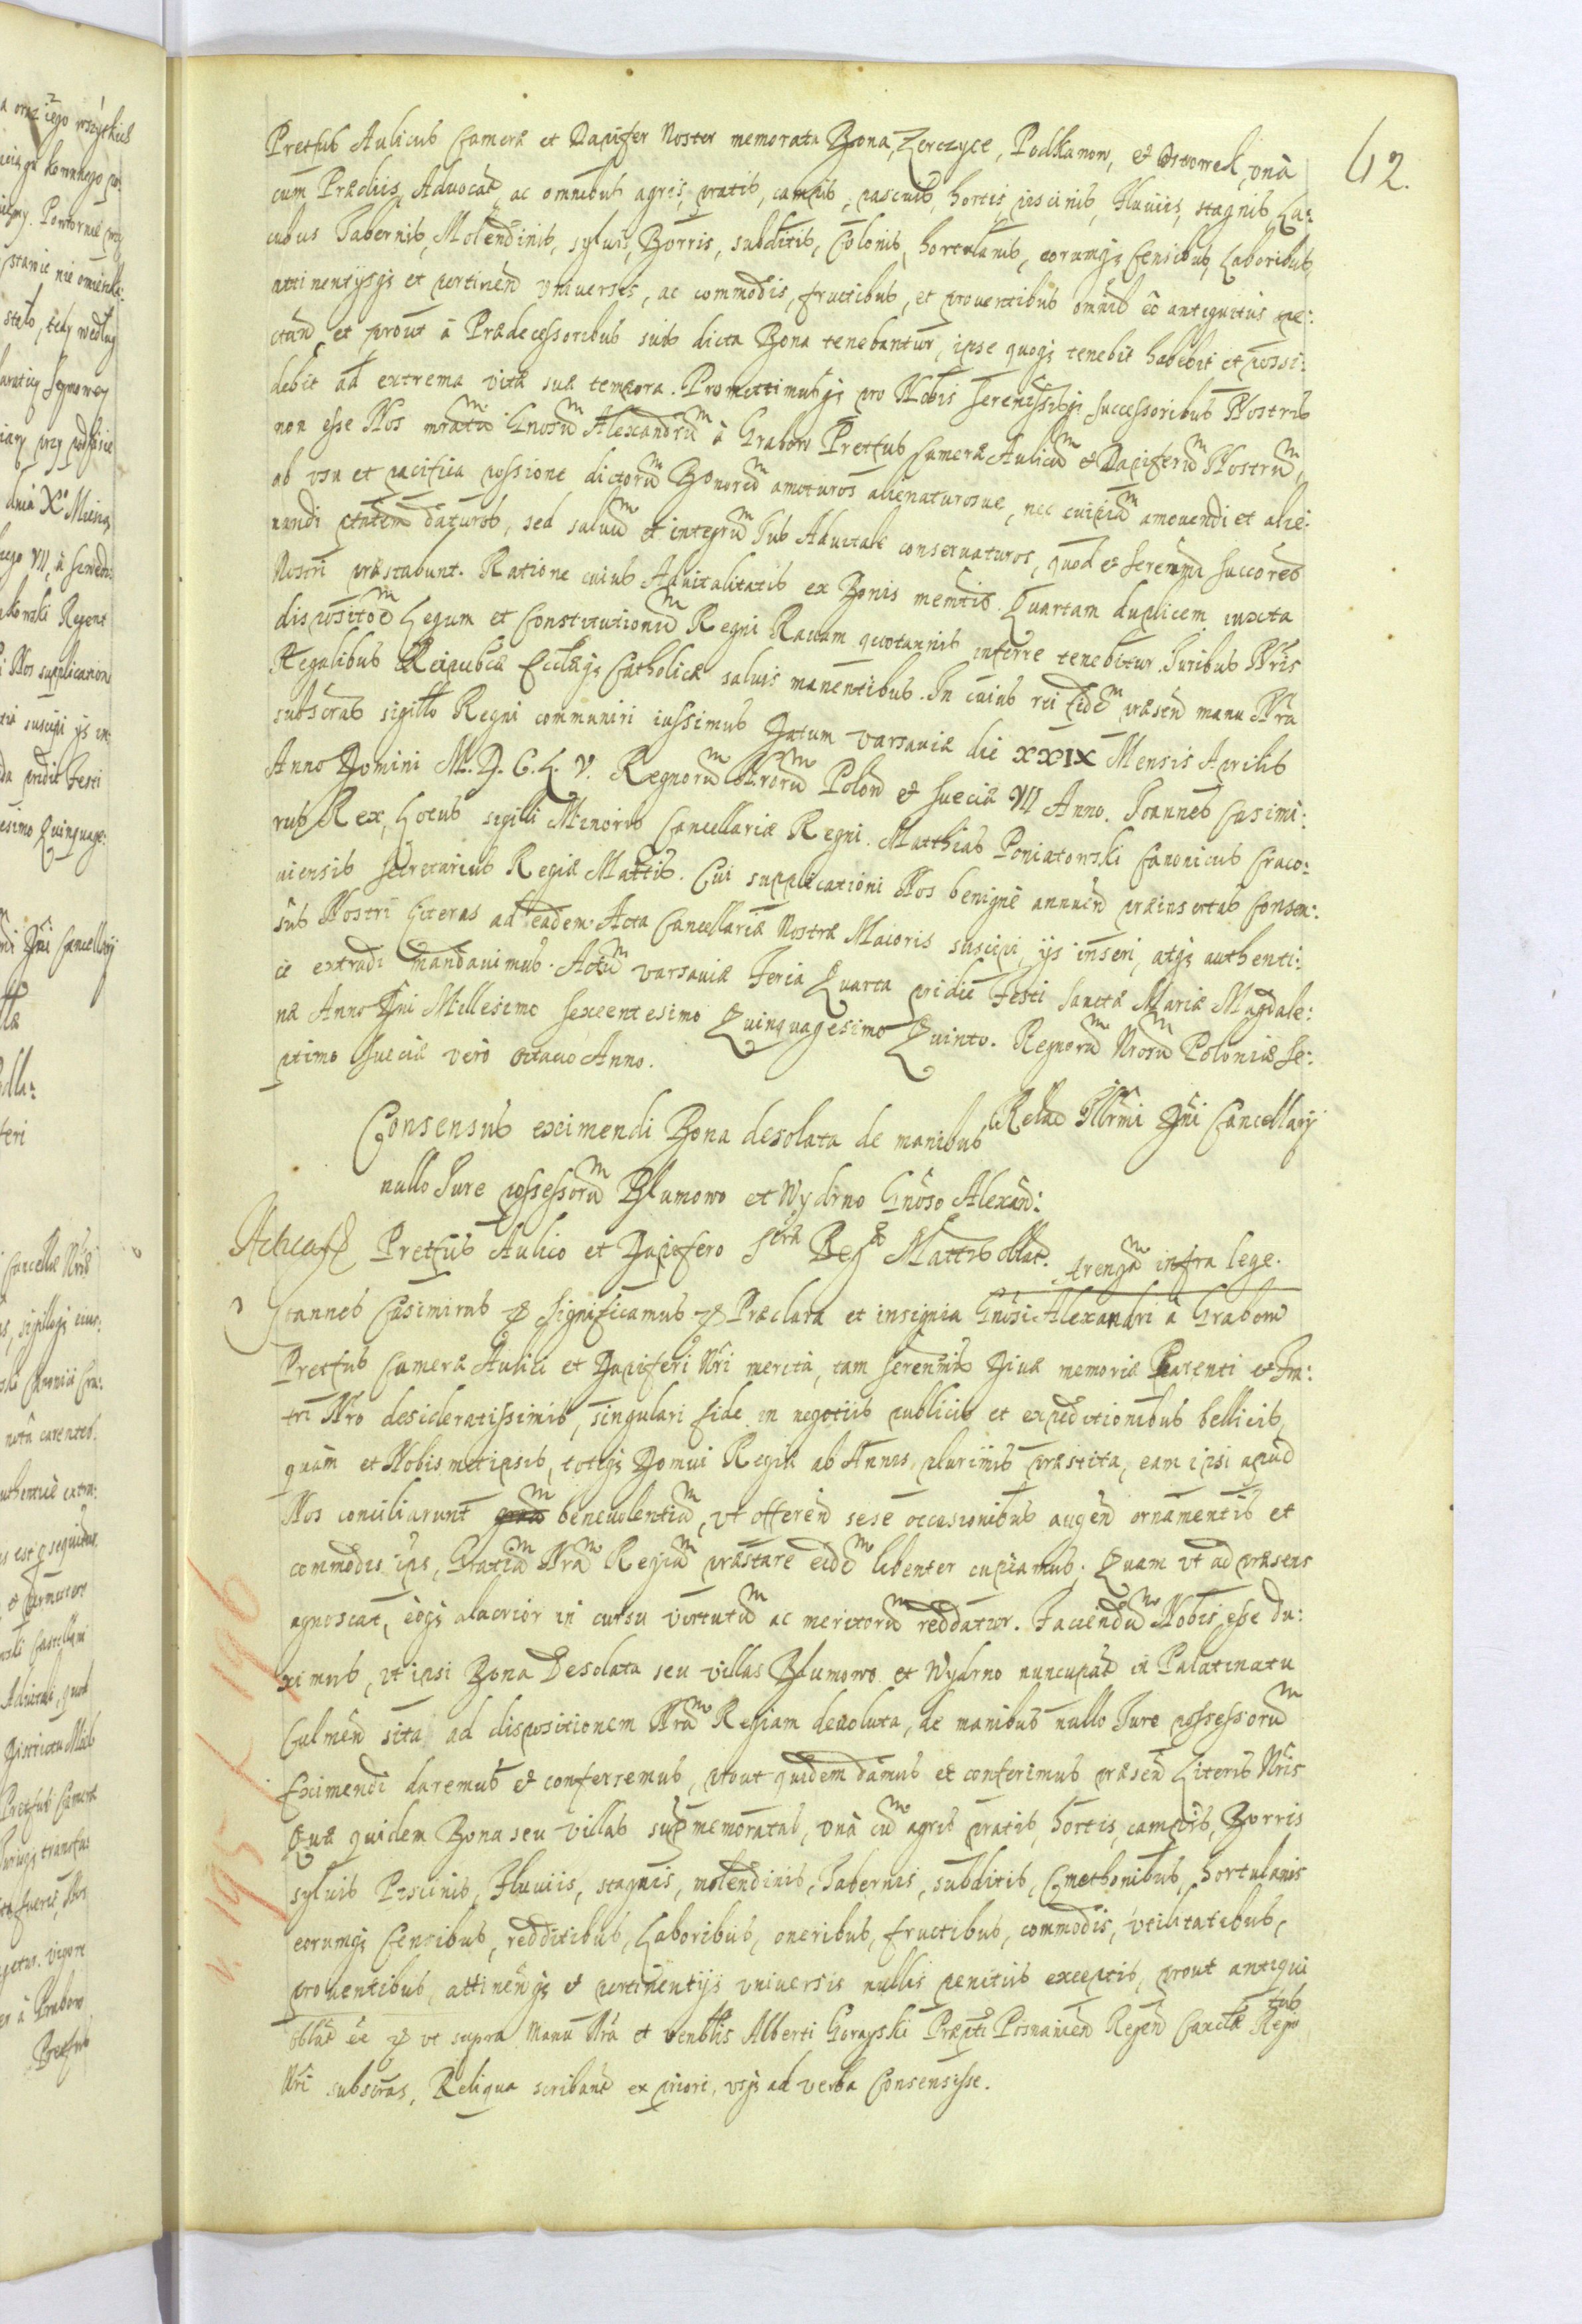 42.
Pretfus Aulicus Cameræ et Dapifer Noster memorata Bona, Zerczyce, Podkanow, et Dworrek, vnà
cum Prædiis, Aduocat, ac omnibus agris, pratis, campis, pascuis, hortis, piscinis, Fluuiis, stagnis, La:
cubus Tabernis, Molendinis, syluis, Borris, subditis, Colonis, hortulanis, eorumqз Censibus, Laboribus,
attinentijsqз et pertinen vniuersis, ac commodis, fructibus, et prouentibus omnib eò antiquitus spe:
ctan et prout à Prædecessoribus suis dicta Bona tenebantur, ipse quoqз tenebit habebit et possi:
debit ad extrema vitæ suæ tempora. Promittimusqз pro Nobis Serenissisqз Successoribus Nostris
non esse Nos mratũ Gnosũ Alexandrũ à Grabow Pretfus Cameræ Aulicũ et Dapiferũ Nostrũ,
ab vsu et pacifica possione dictorũ Bonorũ amoturos alienaturosue, nec cuipiã amouendi et alie:
nandi ptatem daturos, sed saluũ et integrũ Jus Aduitale conseruaturos, quod et Serenmi Succores
Nostri præstabunt. Ratione cuius Aduitalitatis ex Bonis memtis Quartam duplicem iuxta
dispositoe Legum et Constitutionũ Regni Rauam quotannis inferre tenebitur. Juribus Nris
Regalibus Reipubcæ Ecclæqз Catholicæ saluis manentibus. In cuius rei fidẽ præsen manu Nra
subscras sigillo Regni communiri iussimus Datum Varsauiæ die XXIX Mensis Aprilis
Anno Domini M. D. C. L. V. Regnorũ Nrorũ Polon et Sueciæ VII Anno. Joannes Casimi:
rus Rex, Locus sigilli Minoris Cancellariæ Regni. Matthias Poniatowski Canonicus Craco:
uiensis Secretarius Regiæ Mattis. Cui supplicationi Nos benignè annuen præinsertas Consen:
sus Nostri Literas ad eadem Acta Cancellariæ Nostræ Maioris suscipi, ijs inseri, atqз authenti:
ce extradi mandauimus. Actũ Varsauiæ Feria Quarta pridie Festi Sanctæ Mariæ Magdale:
næ Anno Dni Millesimo Sexcentesimo Quinquagesimo Quinto. Regnorũ Nrorũ Poloniæ Se:
ptimo Sueciæ verò octauo Anno.
Relae Illrmi Dni Cancellarij
Consensus eximendi Bona desolata de manibus
nullo Jure possessorũ Blumowo et Wydrno Gnoso Alexan:
Pretfus Aulico et Dapifero Sræ Regæ Mattis oblat. Arengã infra lege.
Joannes Casimirus Significamus Præclara et insignia Gnosi Alexandri à Grabow
Pretfus Cameræ Aulici et Dapiferi Nri merita, tam Serenmis Diuæ memoriæ Parenti et Fra:
tri Nro desideratissimis, singulari fide in negotiis publicis et expeditionibus bellicis,
quàm et Nobis metipsis, totiqз Domui Regiæ ab Annis plurimis præstita, eam ipsi apud
Nos conciliarunt benevolentiã, vt offeren sese occasionibus augen ornamentis et
commodis ips, Gratiã Nrã Regiã præstare eidẽ libenter cupiamus. Quam vt ad præsens
agnoscat, eòqз alacrior in cursu virtutũ ac meritorũ reddatur. Faciendũ Nobis esse du:
ximus, vt ipsi Bona Desolata seu villas Blumowo et Wydrno nuncupat in Palatinatu
Culmen sita ad dispositionem Nrã Regiam deuoluta, de manibus nullo Jure possessorũ
Eximendi daremus et conferremus, prout quidem damus et conferimus præsen Literis Nris
Quæ quidem Bona seu villas sup memoratas, vnà cũ agris pratis, hortis, campis, Borris
syluis Piscinis, Fluuiis, stagnis, molendinis, Tabernis, subditis, Cmethonibus, hortulanis
eorumqз Censibus, redditibus, Laboribus, oneribus, fructibus, commodis, vtilitatibus,
prouentibus, attinenqз et pertinentijs vniuersis nullis penitus exceptis, prout antiqui
tus
vt supra Manu Nra et venblis Alberti Gorayski Præpti Posnanien Regen Cancræ Regni
Nri subscras, Reliqua scribant ex priori, vsqз ad verba Consensisse.
v. 195 i 196